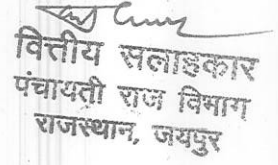 वित्तीय सलाहकार
पंचायती राज विभाग
राजस्थान, जयपुर